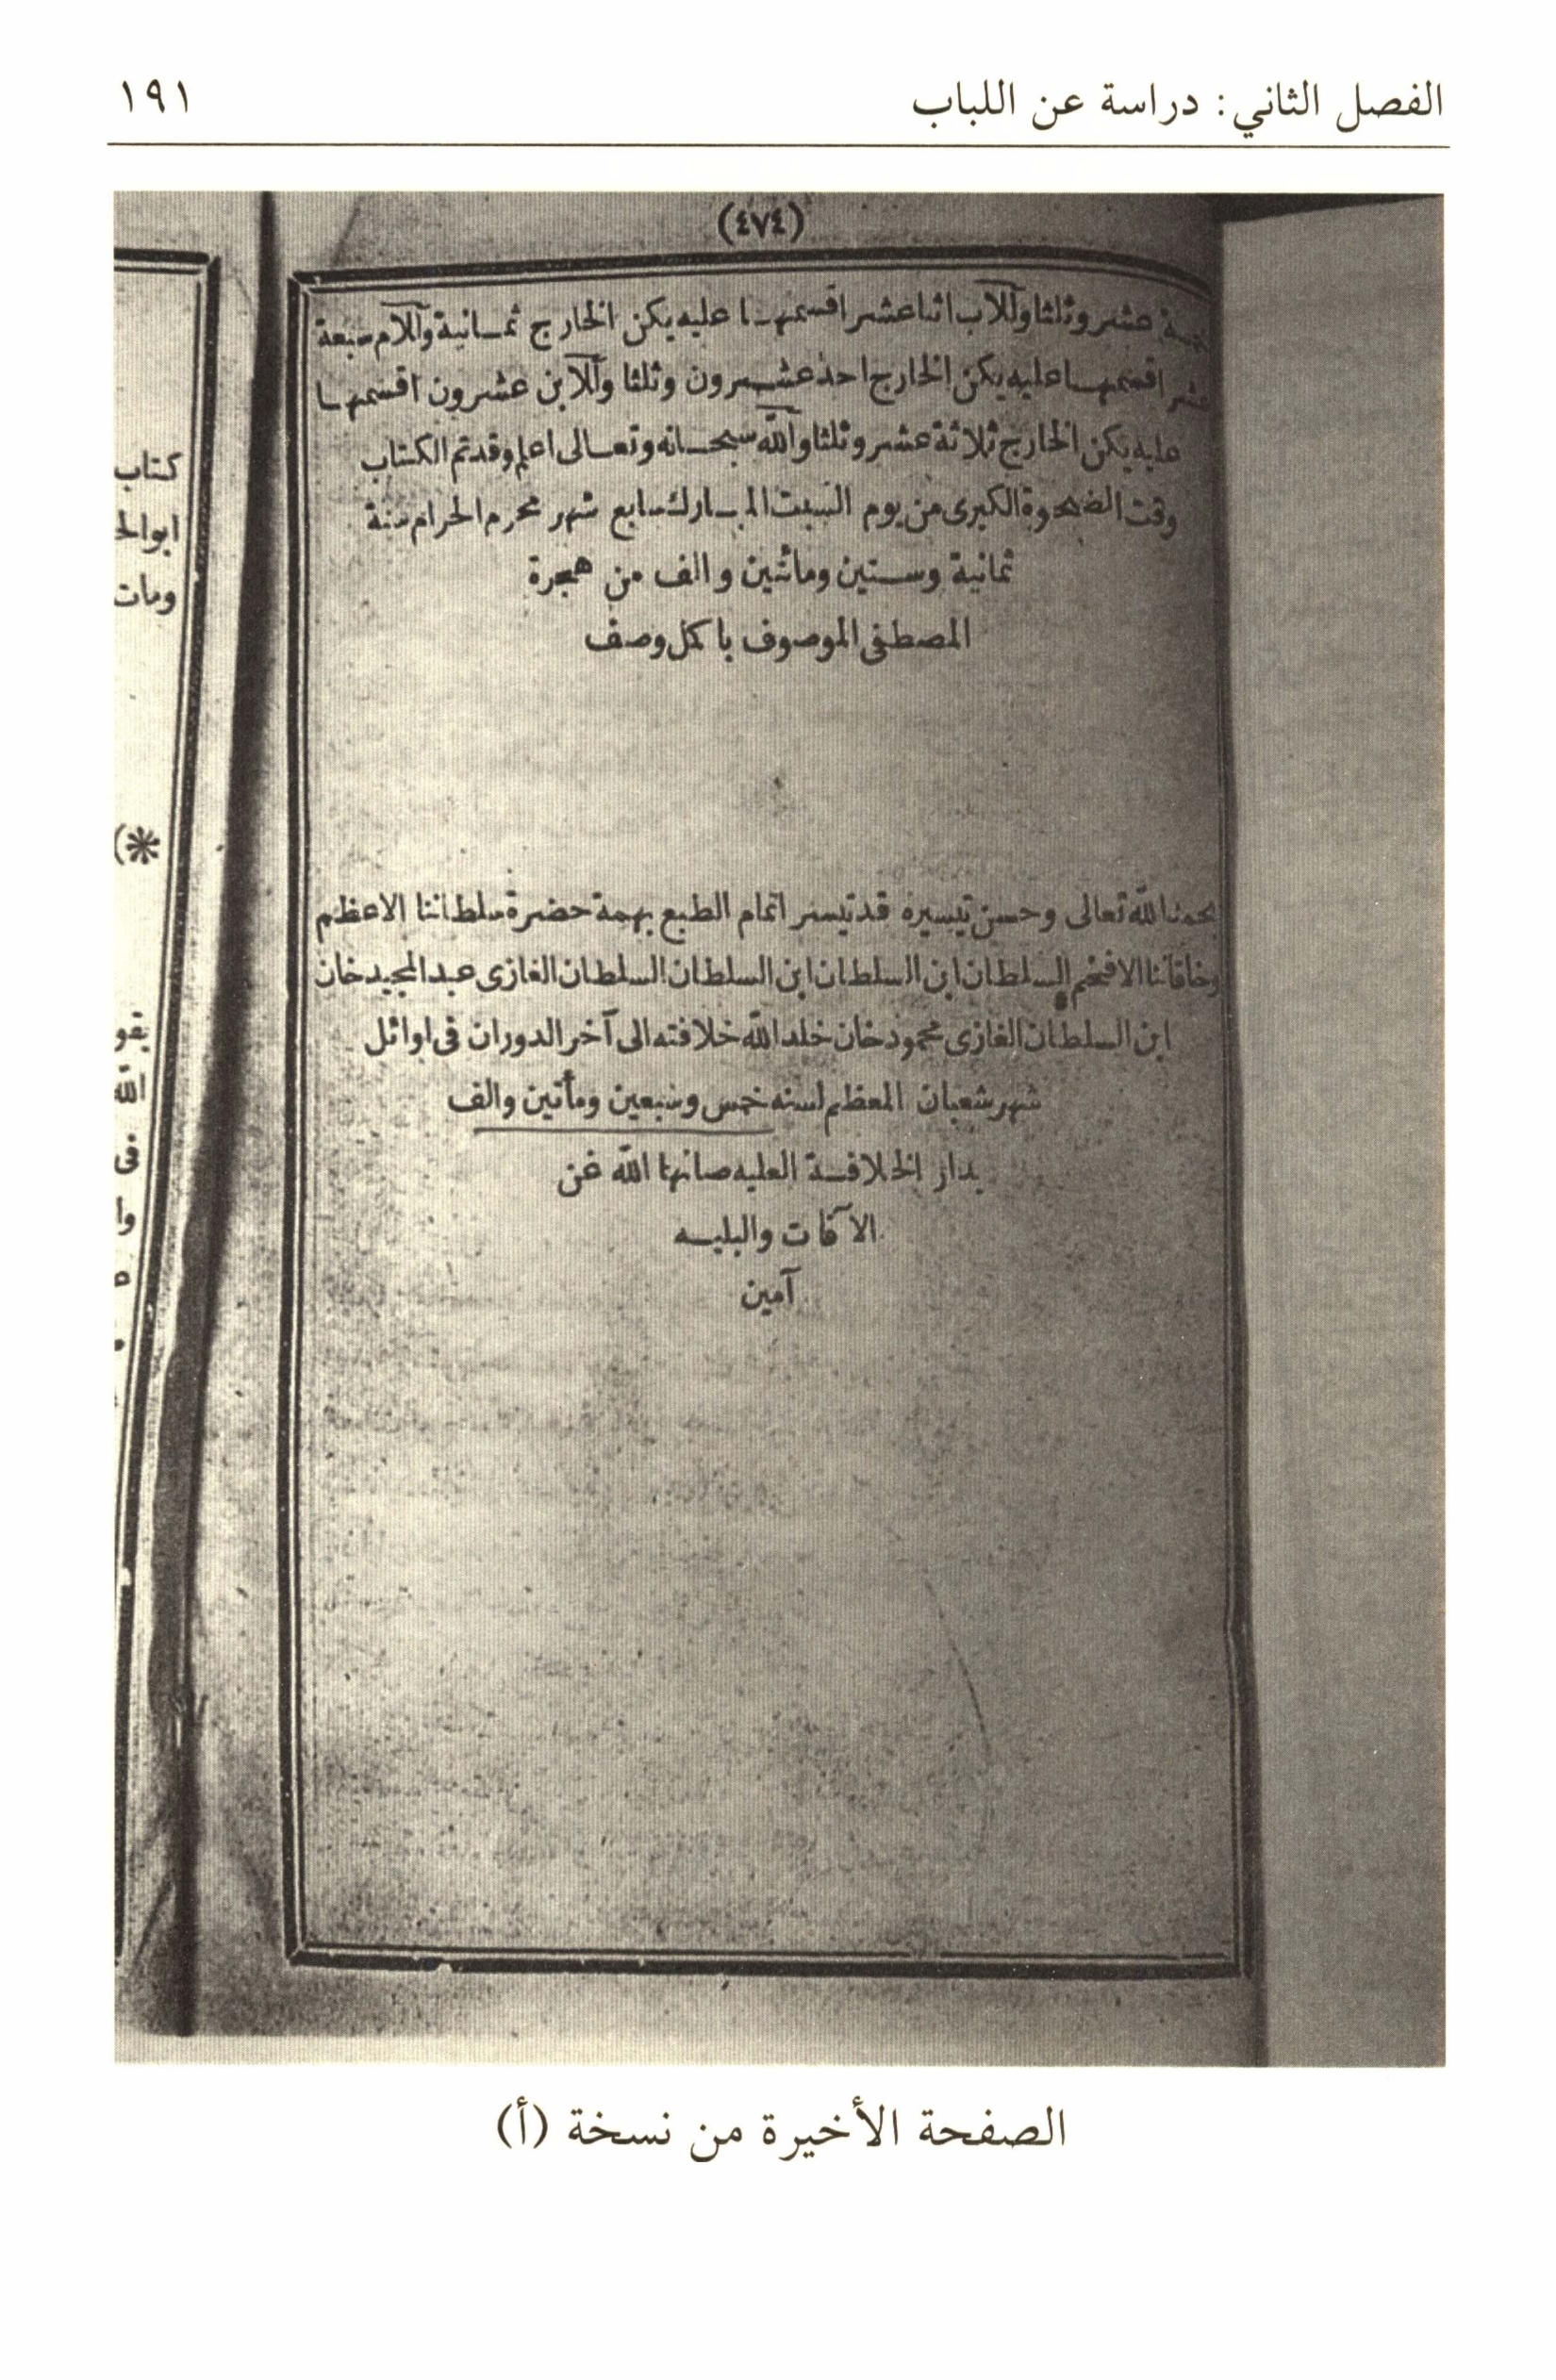 الفصل الثاني: دراسة عن اللباب
١٩١
(٤٧٤)
عشر وثلثا وللاب اثنا عشر اقسمها عليه يكن الخارج ثمانية وللام سبعة
عشر اقسمها عليه يكن الخارج احد عشرون وثلثا وللابن عشرون اقسمها
عليه يكن الخارج ثلاثة عشر وثلثا والله سبحانه وتعالى اعلم وقد تم الكتاب
وقت الضحوة الكبرى من يوم السبت المبارك سابع شهر محرم الحرام سنة
ثمانية وستين ومائتين والف من هجرة
المصطفى الموصوف باكمل وصف
بحمد الله تعالى وحسن تيسيره قد تيسر اتمام الطبع بهمة حضرة سلطاننا الاعظم
وخاقاننا الافخم السلطان ابن السلطان ابن السلطان السلطان الغازى عبد المجيد خان
ابن السلطان الغازى محمود خان خلد الله خلافته الى آخر الدوران فى اوائل
شهر شعبان المعظم لسنه خمس وسبعين ومأتين والف
بدار الخلافة العليه صانها الله عن
الآفات والبليه
آمين
كتاب
ومات
(*
يقو
الله
فى
وا
الصفحة الأخيرة من نسخة (أ)